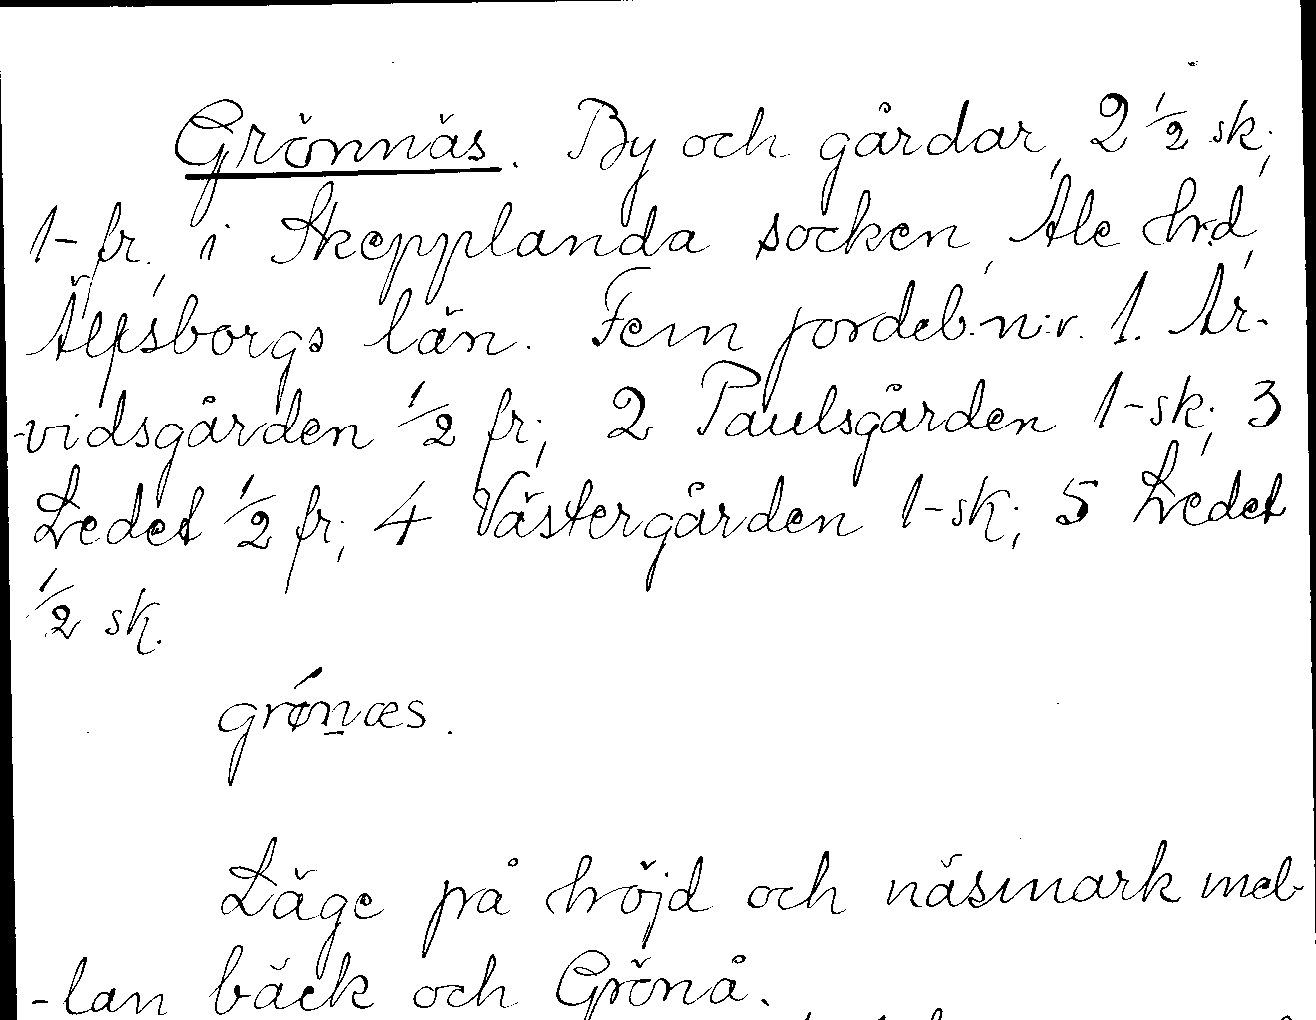 Grönnäs. By och gårdar, 2 1/2 sk;
1-fr., i Skepplanda socken, Ale hrd,
Älfsborgs län. Fem jordeb.n:r. 1. Ar-
-vidsgården 1/2 fr; 2 Paulsgården 1-sk; 3
Ledet 1/2 fr; 4 Västergården 1-sk; 5 Ledet
1/2 sk.
grǿn̲æs.
Läge på höjd och näsmark mel-
-lan bäck och Grönå.